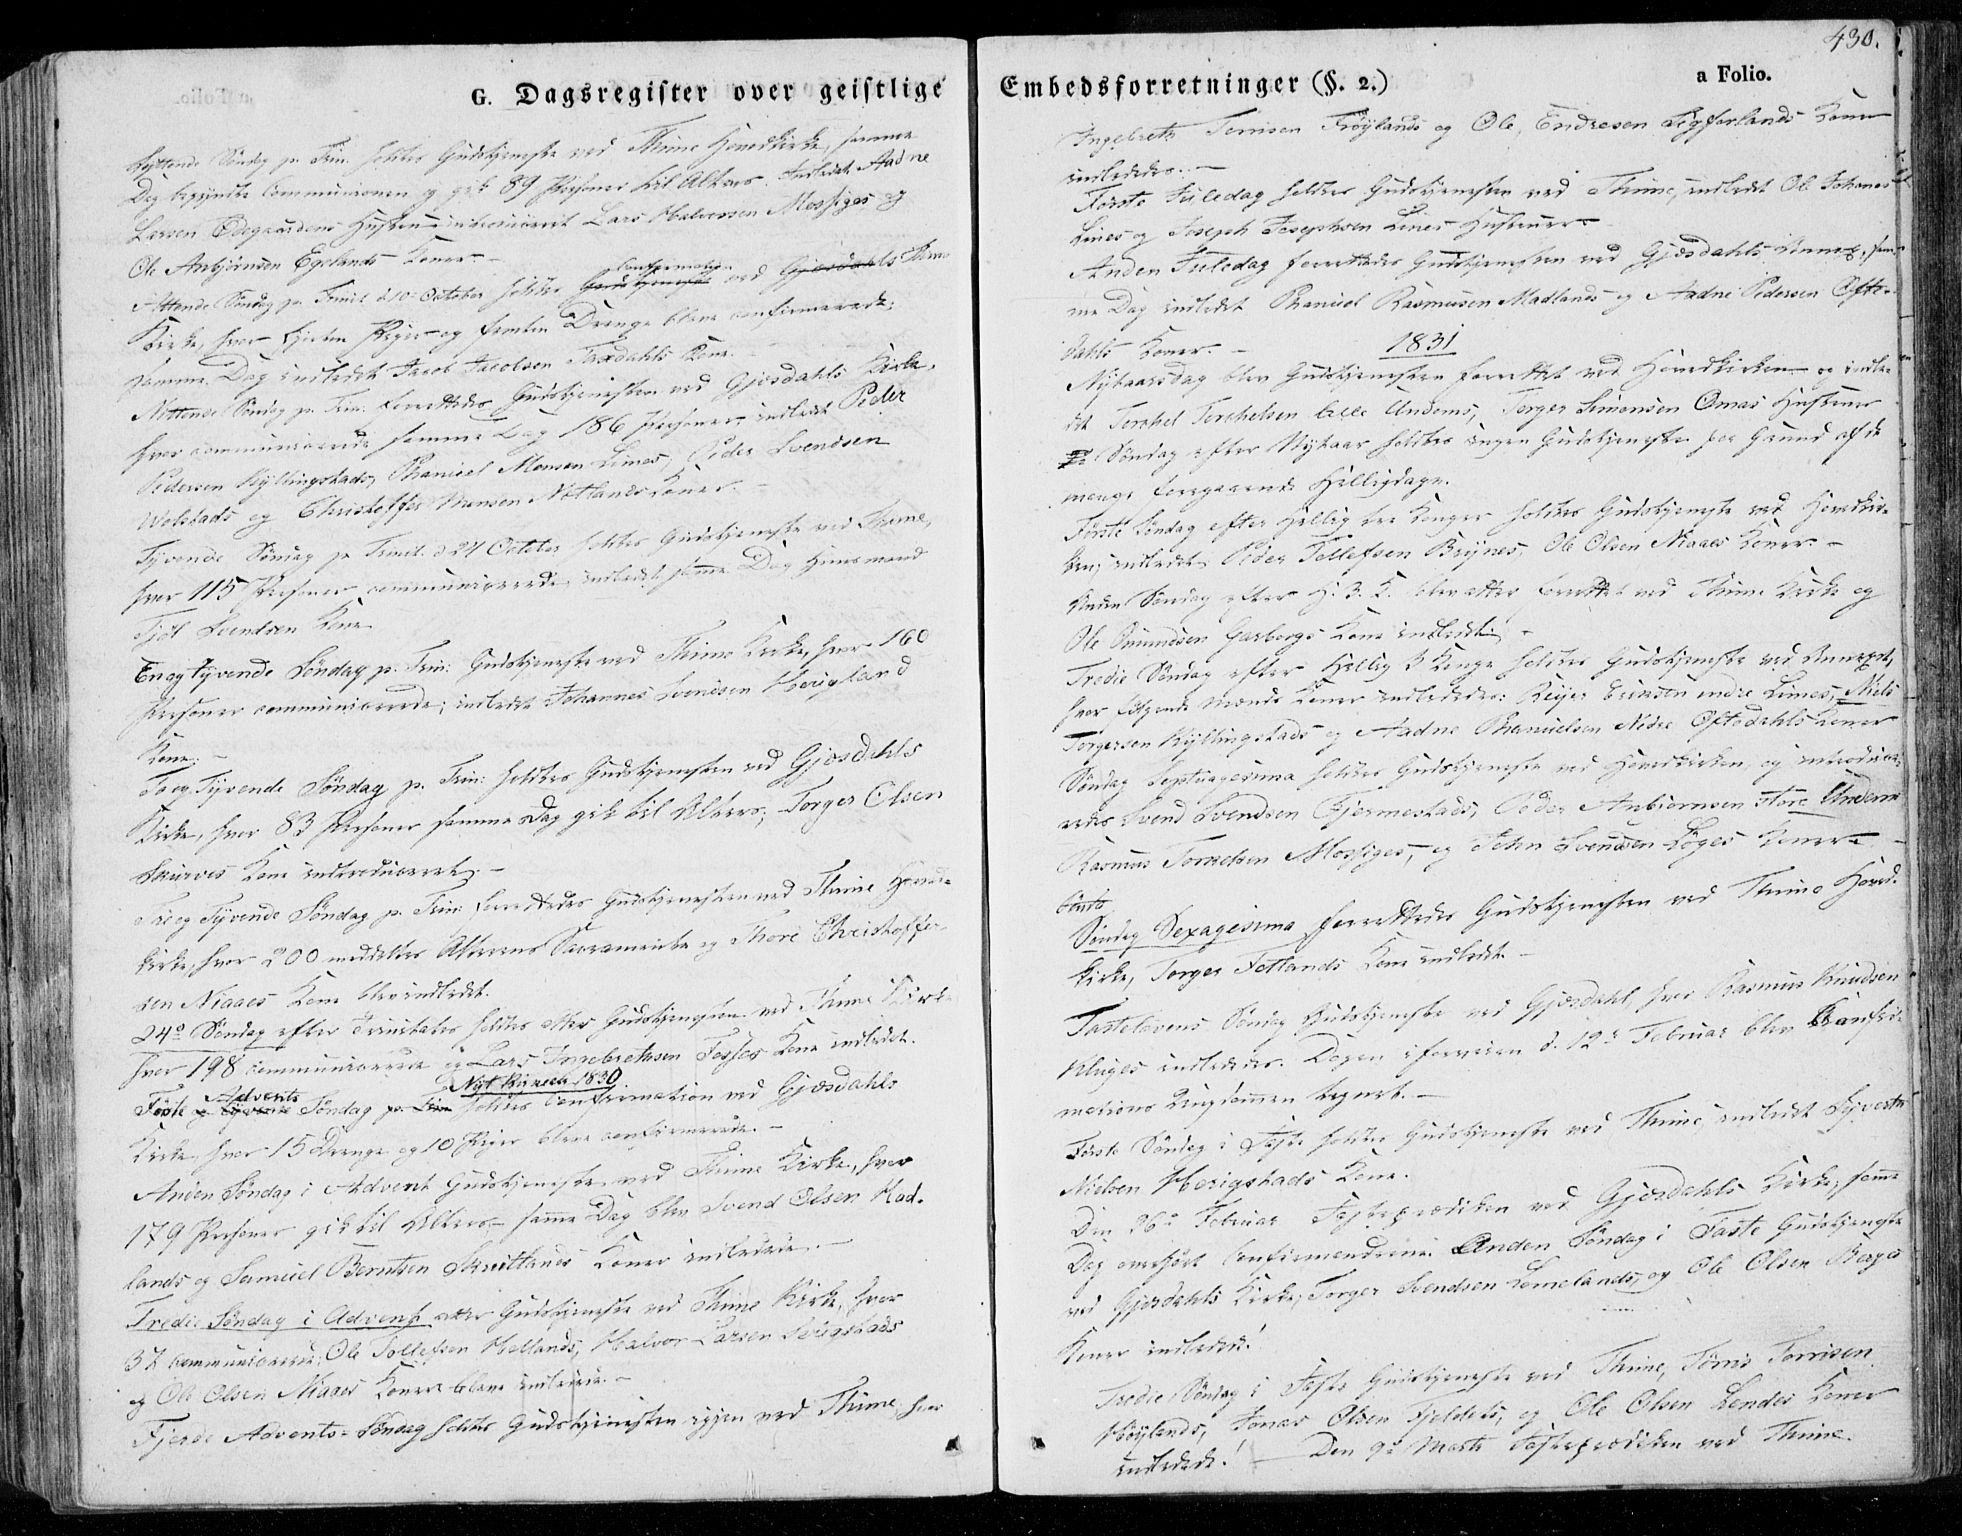 G. Dagsregister over geistlige
Syttende Søndag p. Trin. holdtes Gudstjeneste ved Thime Hovedkirke, samme
Dag begyndte Communionen og gik 89 Personer til Alters. Indledet Aadne
Larsen Ødegaardens Hustru introduceret Lars Halvorsen Mossiges og
Ole Anbjørnsen Egelands Koner. -
Attende Søndag p. Trinit. d. 10de October holdtes Gudstjeneste Confirmation ved Gjæsdahls Thime
Kirke, hvor Piger og femten Drenge bleve confirmerede;
samme Dag indledet Jacob Jacobsen Taxdahls Kone.
Nittende Søndag p. Trin: forrettedes Gudstjenesten ved Gjesdahls Kirke,
hvor communicerede samme Dag 186 Personer, indledet Peder
Pedersen Kyllingstads, Thaniel Monsen Limes, Peder Svendsen
Wolstads og Christoffer Monsen Nætlands Koner. -
Tyvende Søndag p. Trinit. d. 24 October holdtes Gudstjeneste ved Thime,
hvor 115 Personer communicerede, indledet samme Dag Huusmand
Tjøl Svendsen Kone.
En og tyvende Søndag p. Trin: Gudstjeneste ved Thime Kirke, hvor 160
Personer communicerede; indledet Johannes Svendsen Haugland
Kone. -
To og Tyvende Søndag p. Trin: holdtes Gudstjenesten ved Gjæsdahls
Kirke, hvor 83 Personer samme Dag gik til Alters; Torger Olsen
Skurves Kone introduceret. -
Tre og Tyvende Søndag p. Trin: forrettedes Gudstjenesten ved Thime Hoved=
kirke, hvor 200 meddeltes Alterens Sacramente og Thore Christoffer-
sen Niaaes Kone blev indledet.
24de Søndag efter Trinitatis holdtes atter Gudstjenesten ved Thime Kirke
hvor 198 communicerede og Lars Ingebrethsen Fosses Kone indledet.
Nyt Kirkeaar 1830
Første Advents Søndag holdtes Confirmation ved Gjæsdahls
Kirke, hvor 15 Drenge og 10 Piger bleve confirmerede. -
Anden Søndag i Advent Gudstjeneste ved Thime Kirke, hvor
179 Personer gik til Alters. - samme Dag blev Svend Olsen Had-
lands og Samuel Berntsen Skrudlands Koner indledede. -
Tredie Søndag i Advent atter Gudstjeneste ved Thime Kirke, hvor
37 communicerede; Ole Tollefsen Hellands, Halvor Larsen
og Ole Olsen Niaaes Koner bleve indledede. -
Fjerde Advents=Søndag holdtes Gudstjenesten igjen ved Thime, hvor
430.
Embedsforretninger (§. 2.)
a Folio.
Ingebreth Tønnisen Frøylands og Ole Endresen Koner
indledede. -
Første Juledag holdtes Gudstjenesten ved Thime, indledet Ole Johanes
Lines og Joseph Josephsen Lines Hustruer. -
Anden Juledag forrettedes Gudstjenesten ved Gjæsdahls Annex, sam-
me Dag indledet Thaniel Rasmusen Madlands og Aadne Pedersen Ofte-
dahls Koner. -
1831
Nytaarsdag blev Gudstjenesten forrettet ved Hovedkirken og indle-
det Torchel Torchelsen lille Undems, Torger Simonsen Omas Hustruer
Søndag efter Nytaar holdtes ingen Gudstjeneste paa Grund af de
mange foregaaende Helligdage.
Første Søndag efter Hellig tre Konger holdtes Gudstjeneste ved Hovedkir-
ken; indledet Peder Tollefsen Brynes, Ole Olsen Niaaes Koner. -
Anden Søndag efter H. 3. K. blev atter forrettet ved Thime Kirke og
Ole Omundsen Garborgs Kone indledet. -
Tredie Søndag efter Hellig 3 Konge holdtes Gudstjeneste ved Annexet,
hvor følgende Mænds Koner indledede: Reijer Eriksen indre Limes, Niels
Torgersen Kyllingstads og Aadne Thanielsen Nedre Oftedahls Koner
Søndag Septuagesima holdtes Gudstjeneste ved Hovedkirken, og introduce-
redes Svend Svendsen Fjermestads, Peder Anbiørnsen store Undem
Rasmus Tønnesen Mossiges, og John Svendsen Løges Koner. -
Søndag Sexagesima forrettedes Gudstjenesten ved Thime Hoved-
kirke, Torger Fotlands Kone indledet. -
Fastelavens Søndag Gudstjeneste ved Gjæsdahl, hvor Rasmus Knudsen
Kluges indledede. Dagen iforveien d. 12te Februar blev Confir-
mations Ungdommen tegnet. -
Første Søndag i Faste holdtes Gudstjeneste ved Thime, indledet Syvert
Nielsen Herigstads Kone.
Den 26de Februar Fasteprædiken ved Gjæsdahls Kirke, samme
Dag overhørt Confirmanderne. Anden Søndag i Faste Gudstjeneste
ved Gjæsdahls Kirke, Torger Svendsen Lomelands, og Ole Olsen Berge
Koner indledede!
Tredie Søndag i Faste Gudstjeneste ved Thime, Tønnis Tønnisen
Høylands, Jonas Olsen Fjeldets, og Ole Olsen Lendes Koner
indledede! - Den 9de Marts Fasteprædiken ved Thime.